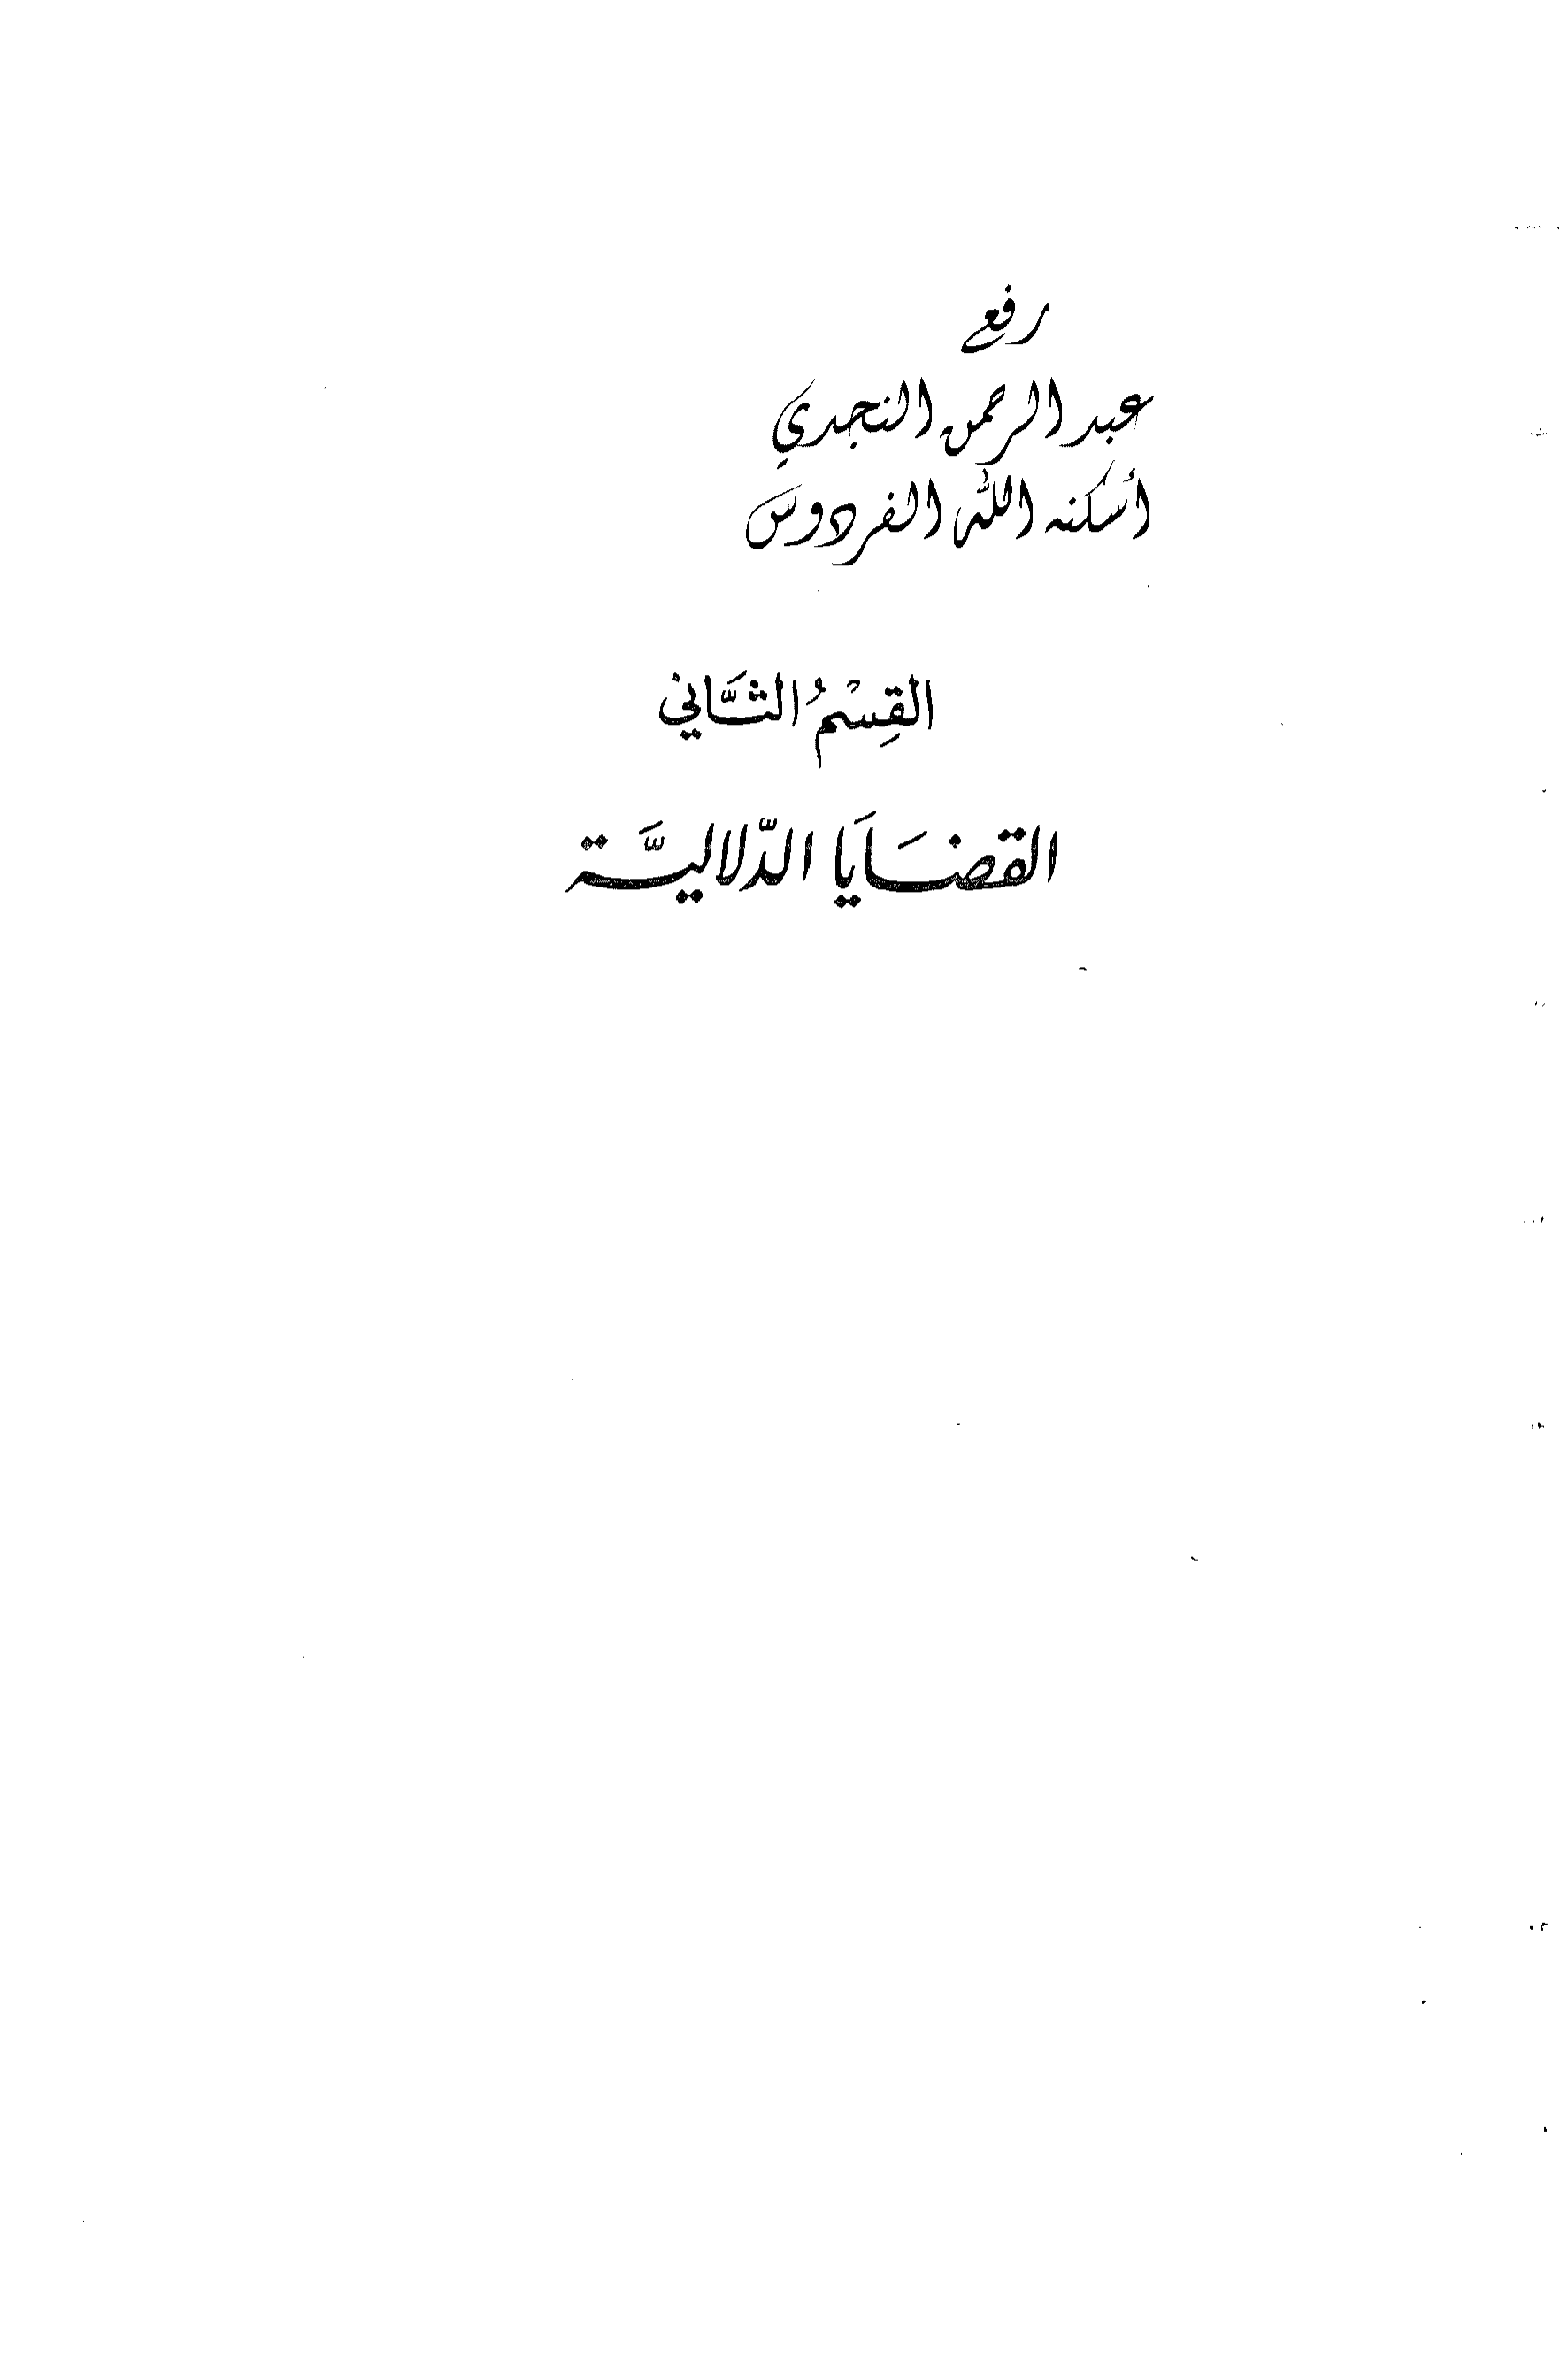 رفع
عبد الرحمن النجدي
أسكنه الله الفردوس
القِسْمُ الثَّاني
القضَايَا الدّلاليَّة